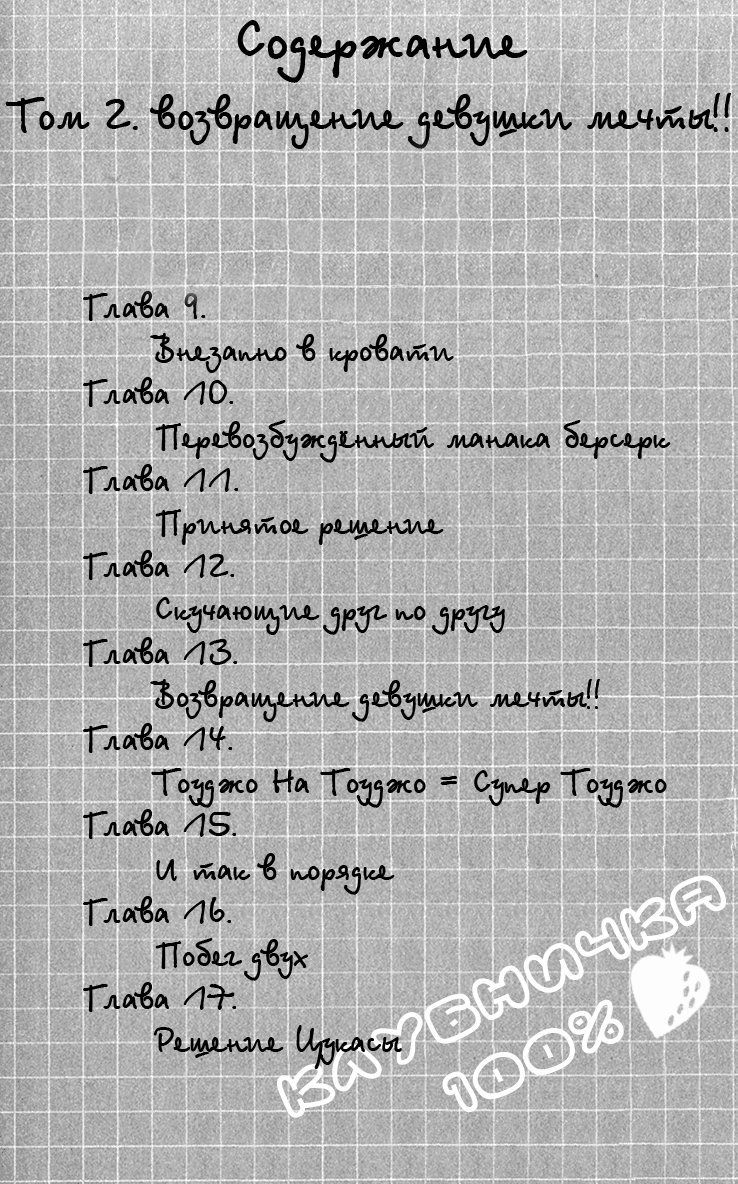 Содержание
Том 2. возвращение девушки мечты!!
Глава 9.
Внезапно в кровати
Глава 10.
Перевозбуждённый манака берсерк
Глава 11.
Принятое решение
Глава 12.
Скучающие друг по другу
Глава 13.
Возвращение девушки мечты!!
Глава 14.
Тоуджо На Тоуджо = Супер Тоуджо
Глава 15.
И так в порядке
Глава 16.
Побег двух
Глава 17.
Решение Цукасы
КЛУБНИЧКА
100%